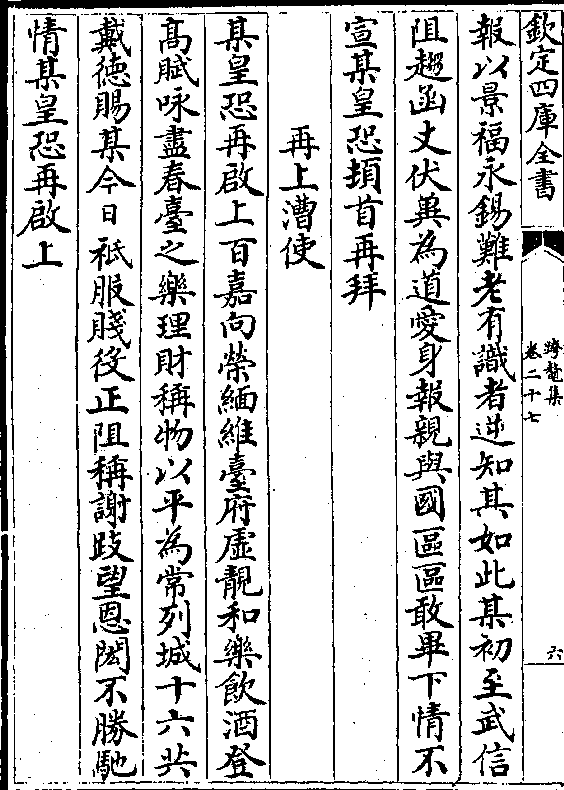 欽定四庫全書
跨鼇集
卷二十七
六
報以景福永錫難老有識者逆知其如此某初至武信
阻趨函丈伏冀為道愛身報親與國區區敢畢下情不
宣某皇恐頓首再拜
再上漕使
某皇恐再啟上百嘉向榮緬維臺府虛靚和樂飲酒登
髙賦咏盡春臺之樂理財稱物以平為常列城十六共
戴德賜某今日祇服賤役正阻稱謝跂望恩閎不勝馳
情某皇恐再啟上